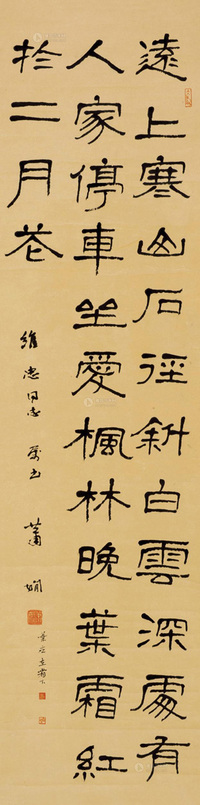 遠上寒山石徑斜白雲深處有
人家停車坐愛楓林晚葉霜紅
於二月花
維忠同志 蕭嫻